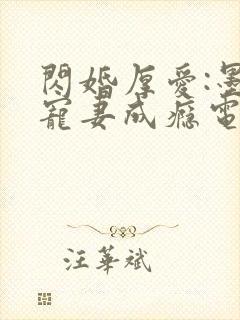 閃婚厚愛:墨
寵妻成癮電
汪華斌